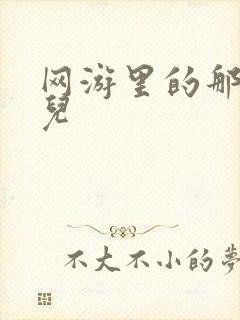 网游里的那
兒
不大不小的夢